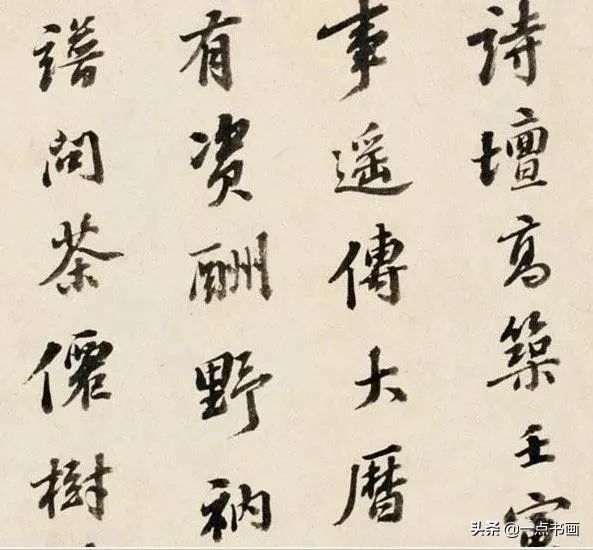 詩壇高築壬寅
事遥傳大曆
有資酬野衲
譜問茶僊樹
头条 @一点书画